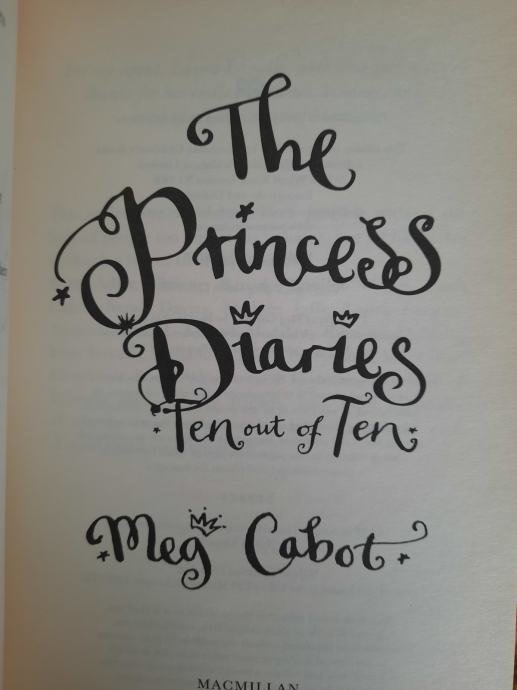 The
Princess
Diaries
Ten out of Ten
Meg Cabot
MACMILLAN